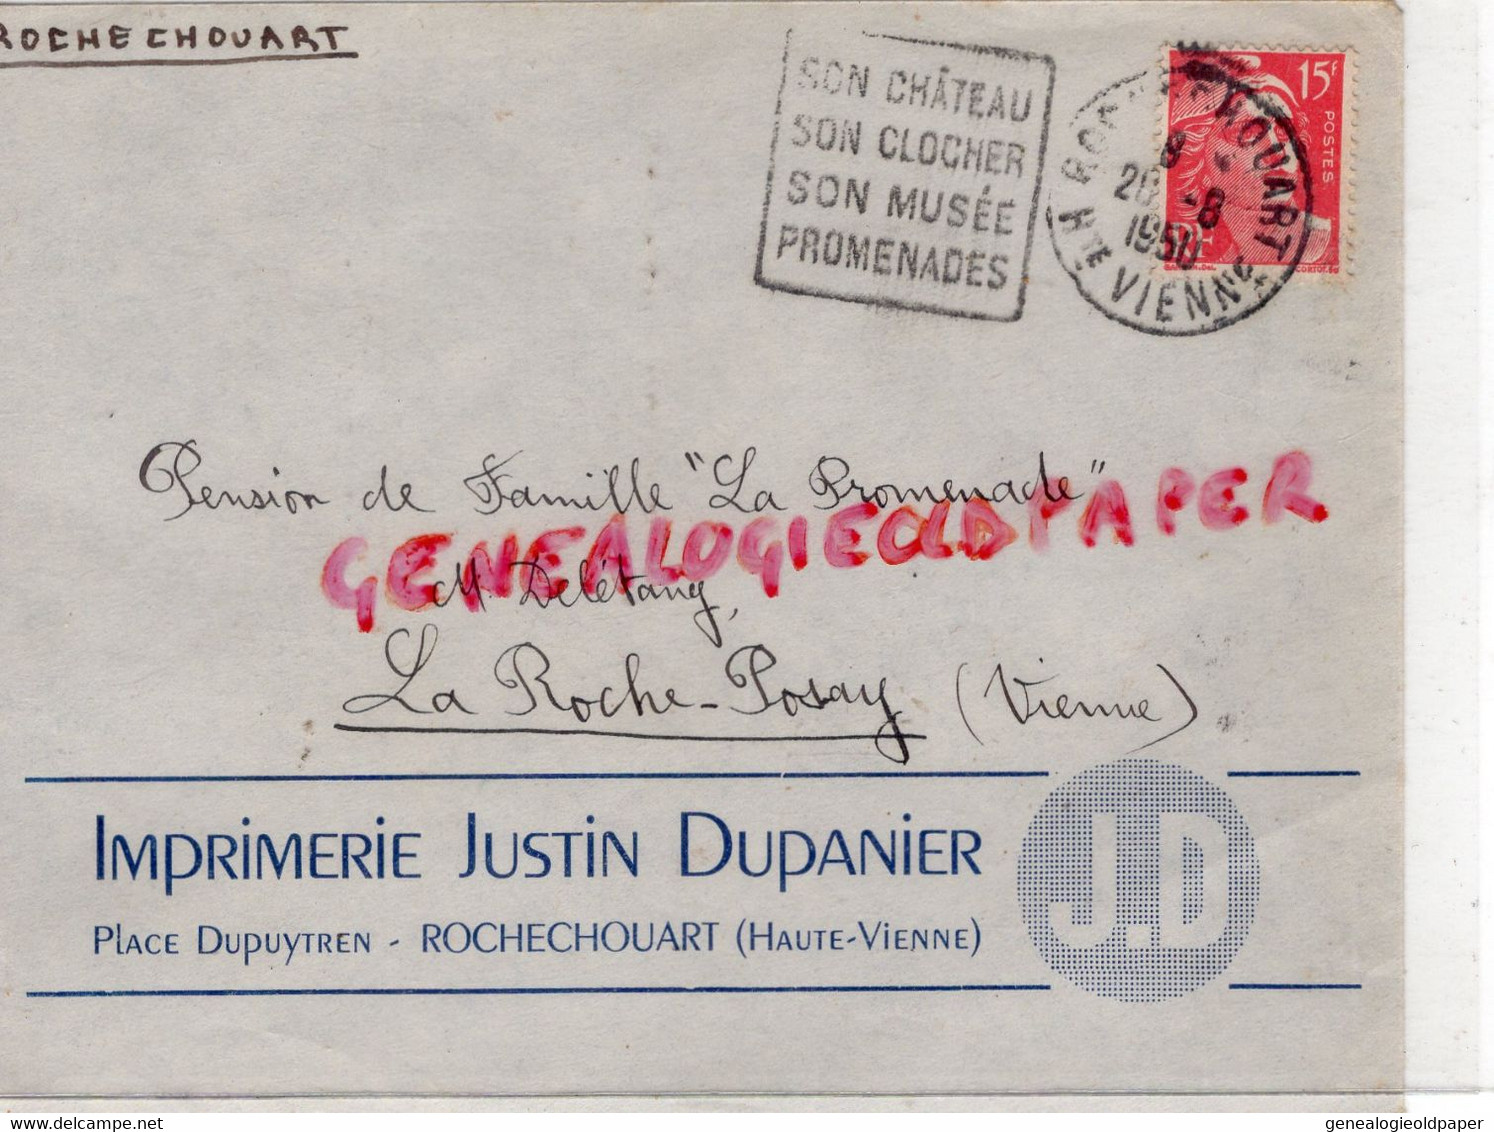 ROCHECHOUART
SON CHÂTEAU
SON CLOCHER
SON MUSÉE
PROMENADES
ROCHECHOUART
8
8
1950
HTE VIENNE
15F
POSTES
RF
Pension de Famille "La Promenade"
GENEALOGIEOLDPAPER
M. Delétang,
La Roche-Posay (Vienne)
IMPRIMERIE JUSTIN DUPANIER
J.D
PLACE DUPUYTREN - ROCHECHOUART (HAUTE-VIENNE)
genealogieoldpaper